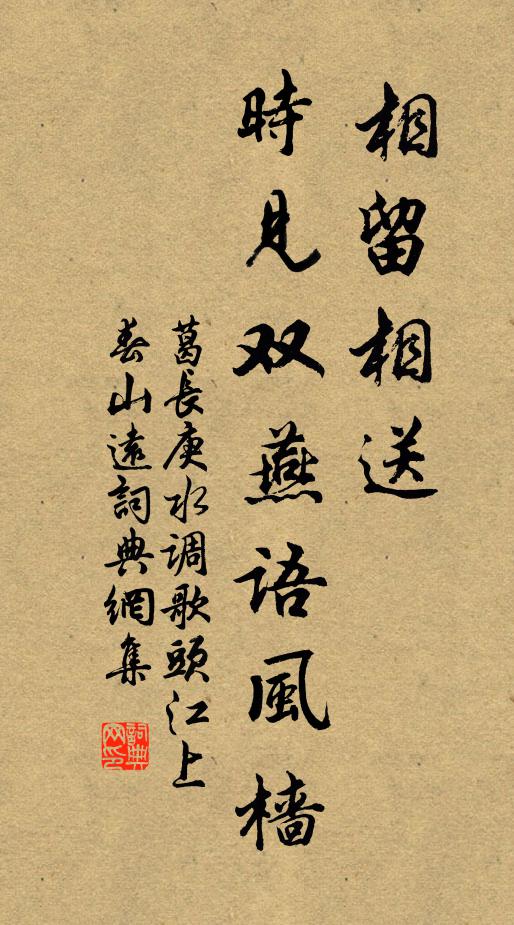 相留相送
時見双燕語風檣
葛長庚水调歌頭江上
春山遠詞典網集
詞典网印